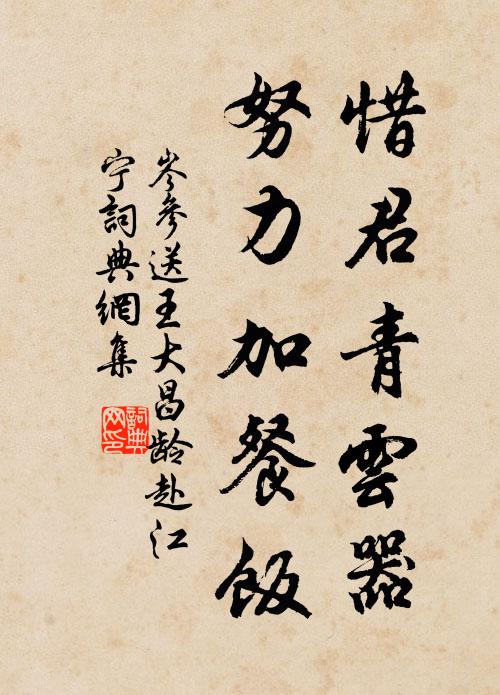 惜君青雲器
努力加餐飯
岑參送王大昌龄赴江
宁詞典網集
詞典網印